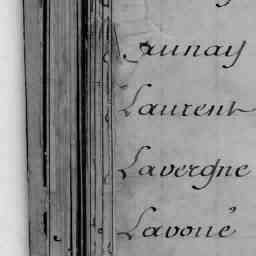 Launay
Laurent
Lavergne
Lavoué